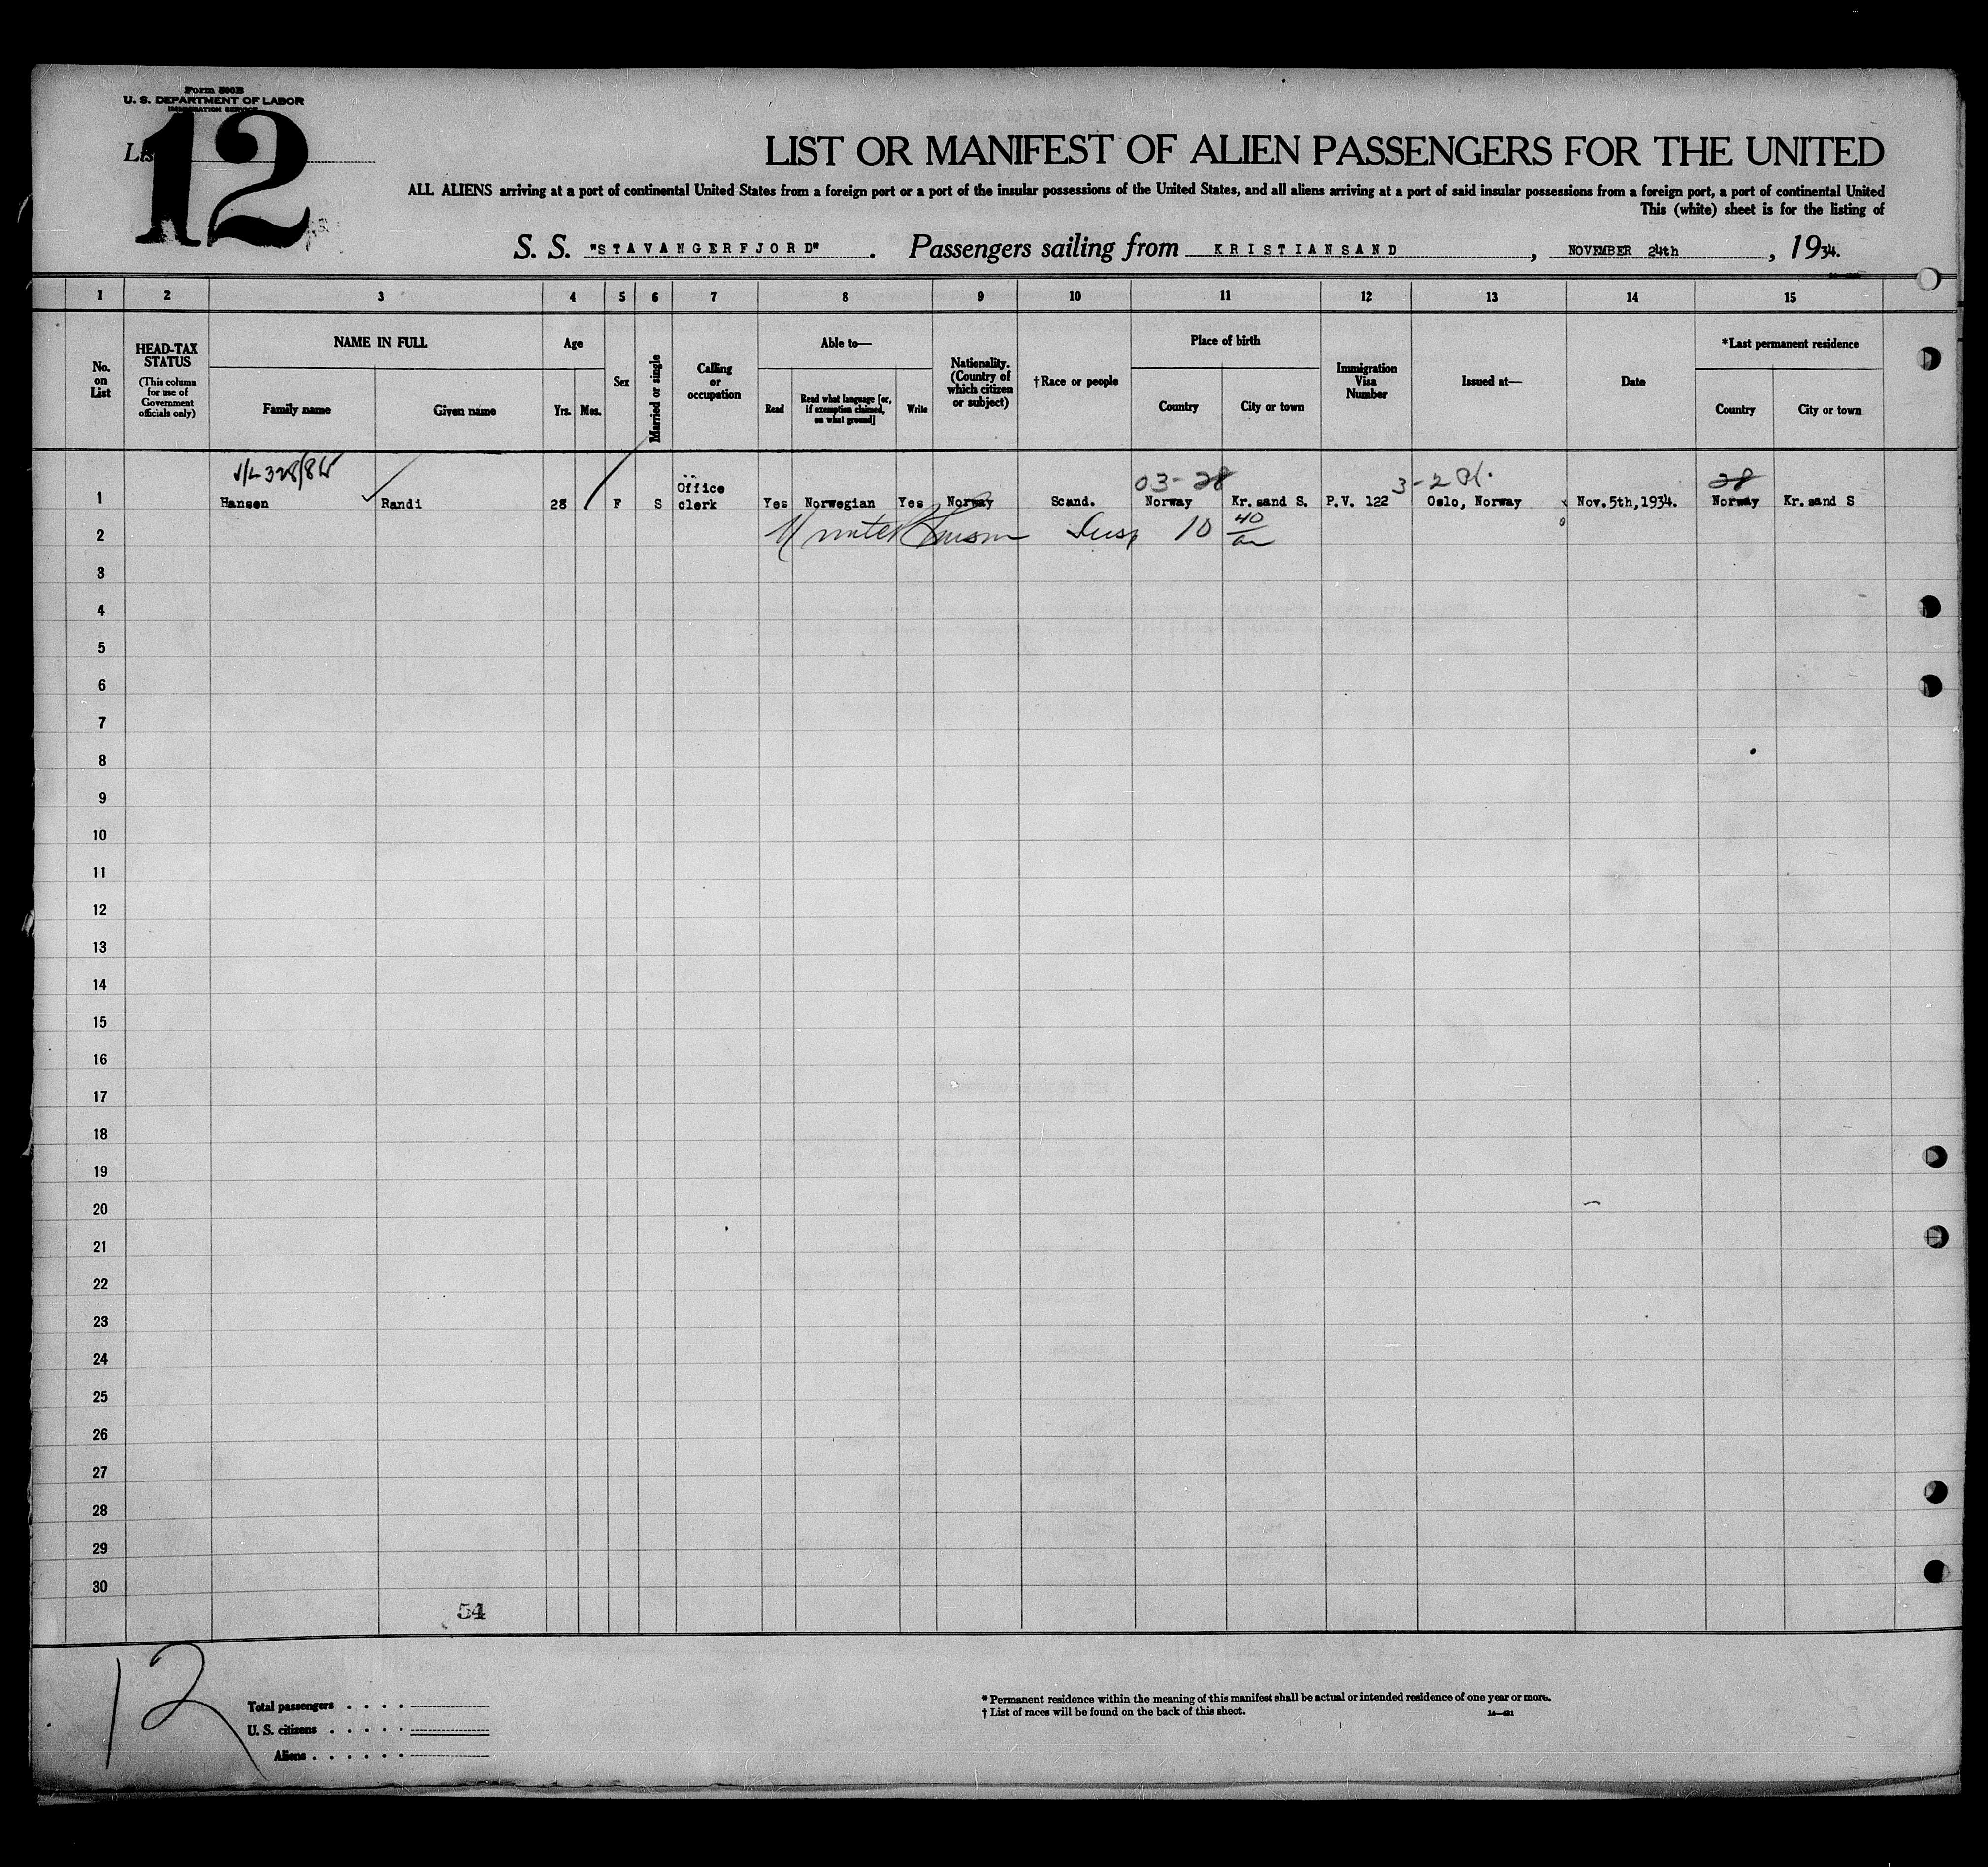 Form 500B
U. S. DEPARTMENT OF LABOR
IMMIGRATION SERVICE
List 12
LIST OR MANIFEST OF ALIEN PASSENGERS FOR THE UNITED
ALL ALIENS arriving at a port of continental United States from a foreign port or a port of the insular possessions of the United States, and all aliens arriving at a port of said insular possessions from a foreign port, a port of continental United
This (white) sheet is for the listing of
S. S. "STAVANGERFJORD". Passengers sailing from KRISTIANSAND, NOVEMBER 24th, 1934.
1 2 3 4 5 6 7 8 9 10 11 12 13 14 15
No. on List
HEAD-TAX STATUS
(This column for use of Government officials only)
NAME IN FULL
Family name
Given name
Age
Yrs. Mos.
Sex
Married or single
Calling or occupation
Able to—
Read
Read what language [or, if exemption claimed, on what ground]
Write
Nationality. (Country of which citizen or subject)
†Race or people
Place of birth
Country
City or town
Immigration Visa Number
Issued at—
Date
*Last permanent residence
Country
City or town
03-28 3-2 28
1 Hansen Randi 28 F S Office clerk Yes Norwegian Yes Norway Scand. Norway Kr.sand S. P.V. 122 Oslo, Norway Nov.5th,1934. Norway Kr.sand S
10 40
2
3
4
5
6
7
8
9
10
11
12
13
14
15
16
17
18
19
20
21
22
23
24
25
26
27
28
29
30
54
12
Total passengers
U. S. citizens
Aliens
* Permanent residence within the meaning of this manifest shall be actual or intended residence of one year or more.
† List of races will be found on the back of this sheet.